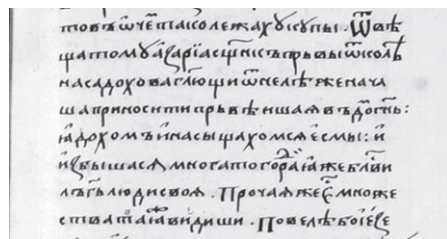 товъ ѡ чет та ко лежахꙋ кꙋпы . Ѿвѣ
ща томꙋ азарїа сщ҃нікъ прьвыи ѿ колѣ
на садохова гл҃ющи ѿнелѣ же нача
ша приносити прьвѣишая въ до́ гн҃ь :
ꙗдохомъ и насыщахомсѧ є́смы : и
избышасѧ многа того ра́ ꙗже бл҃ви
лъ г҃ь люди своя . Прочая же є҃ множе
ства та ꙗ́ видиши . Повелѣ бо іезе